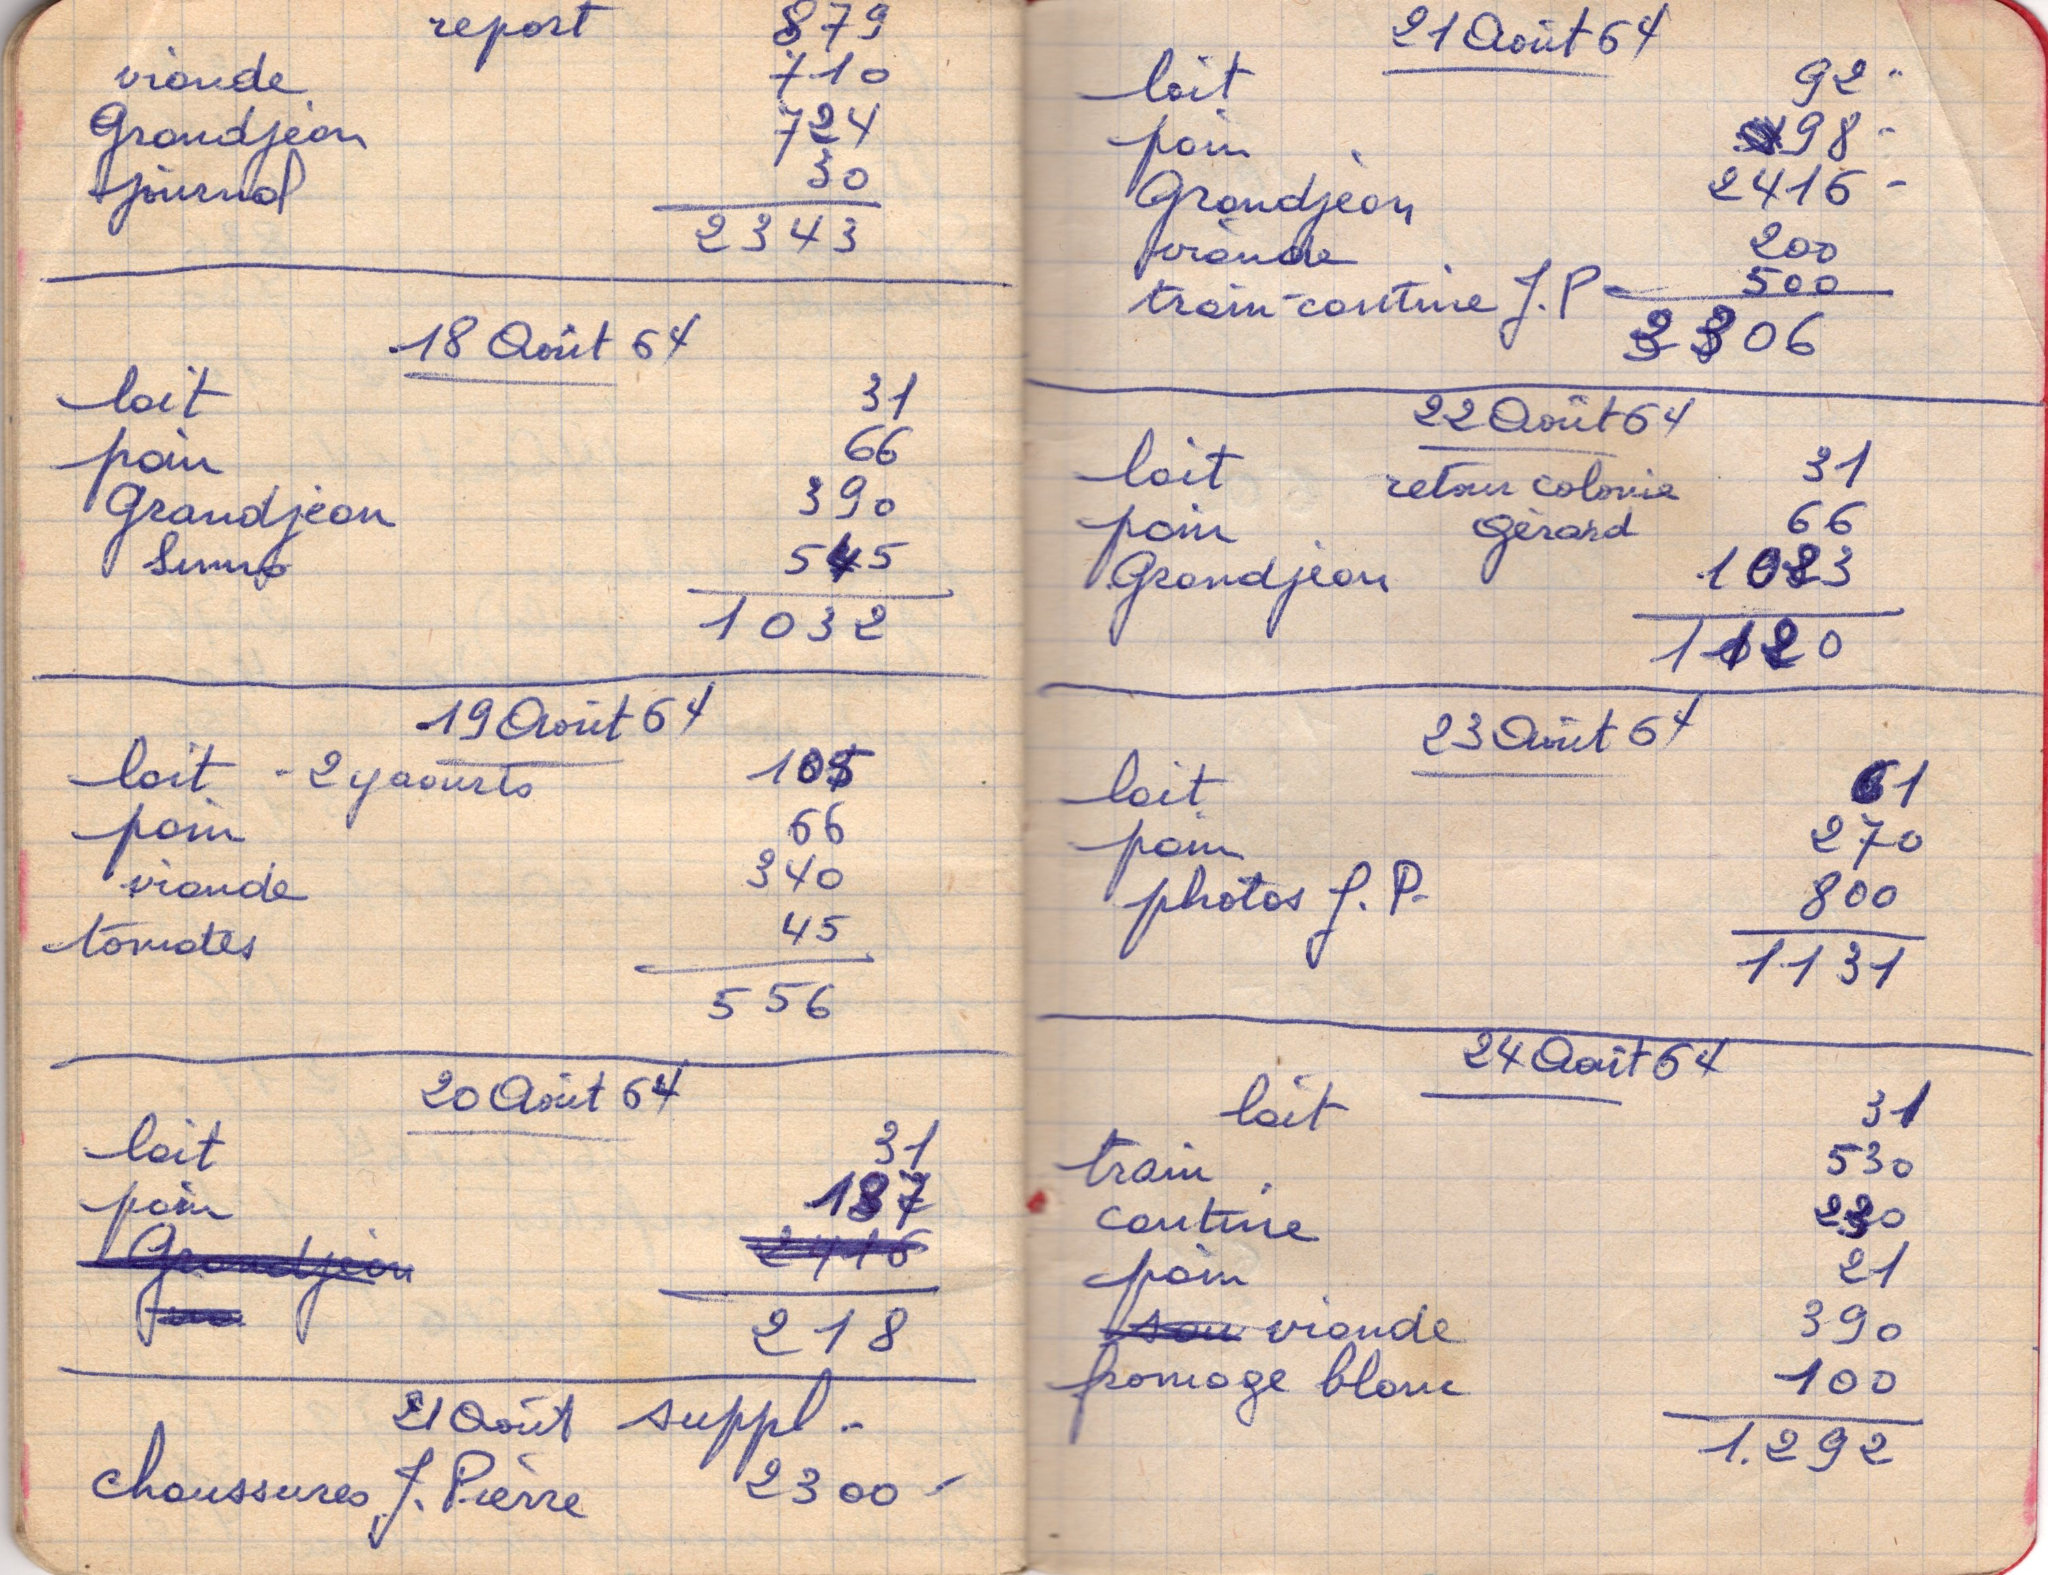 report 879
viande 710
Grandjean 724
journal 30
2343
18 Août 64
lait 31
pain 66
Grandjean 390
545
1032
19 Août 64
lait - 2 yaourts 105
pain 66
viande 340
tomates 45
556
20 Août 64
lait 31
pain 187
Grandjean 2416
218
21 Août suppl.
chaussures J. Pierre 2300 -
21 Août 64
lait 92 "
pain 98 -
Grandjean 2416 -
viande 200
train - cantine J.P 500
3306
22 Août 64
lait retour colonie 31
pain Gérard 66
Grandjean 1023
1120
23 Août 64
lait 61
pain 270
photos J. P. 800
1131
24 Août 64
lait 31
train 530
cantine 220
pain 21
viande 390
fromage blanc 100
1.292